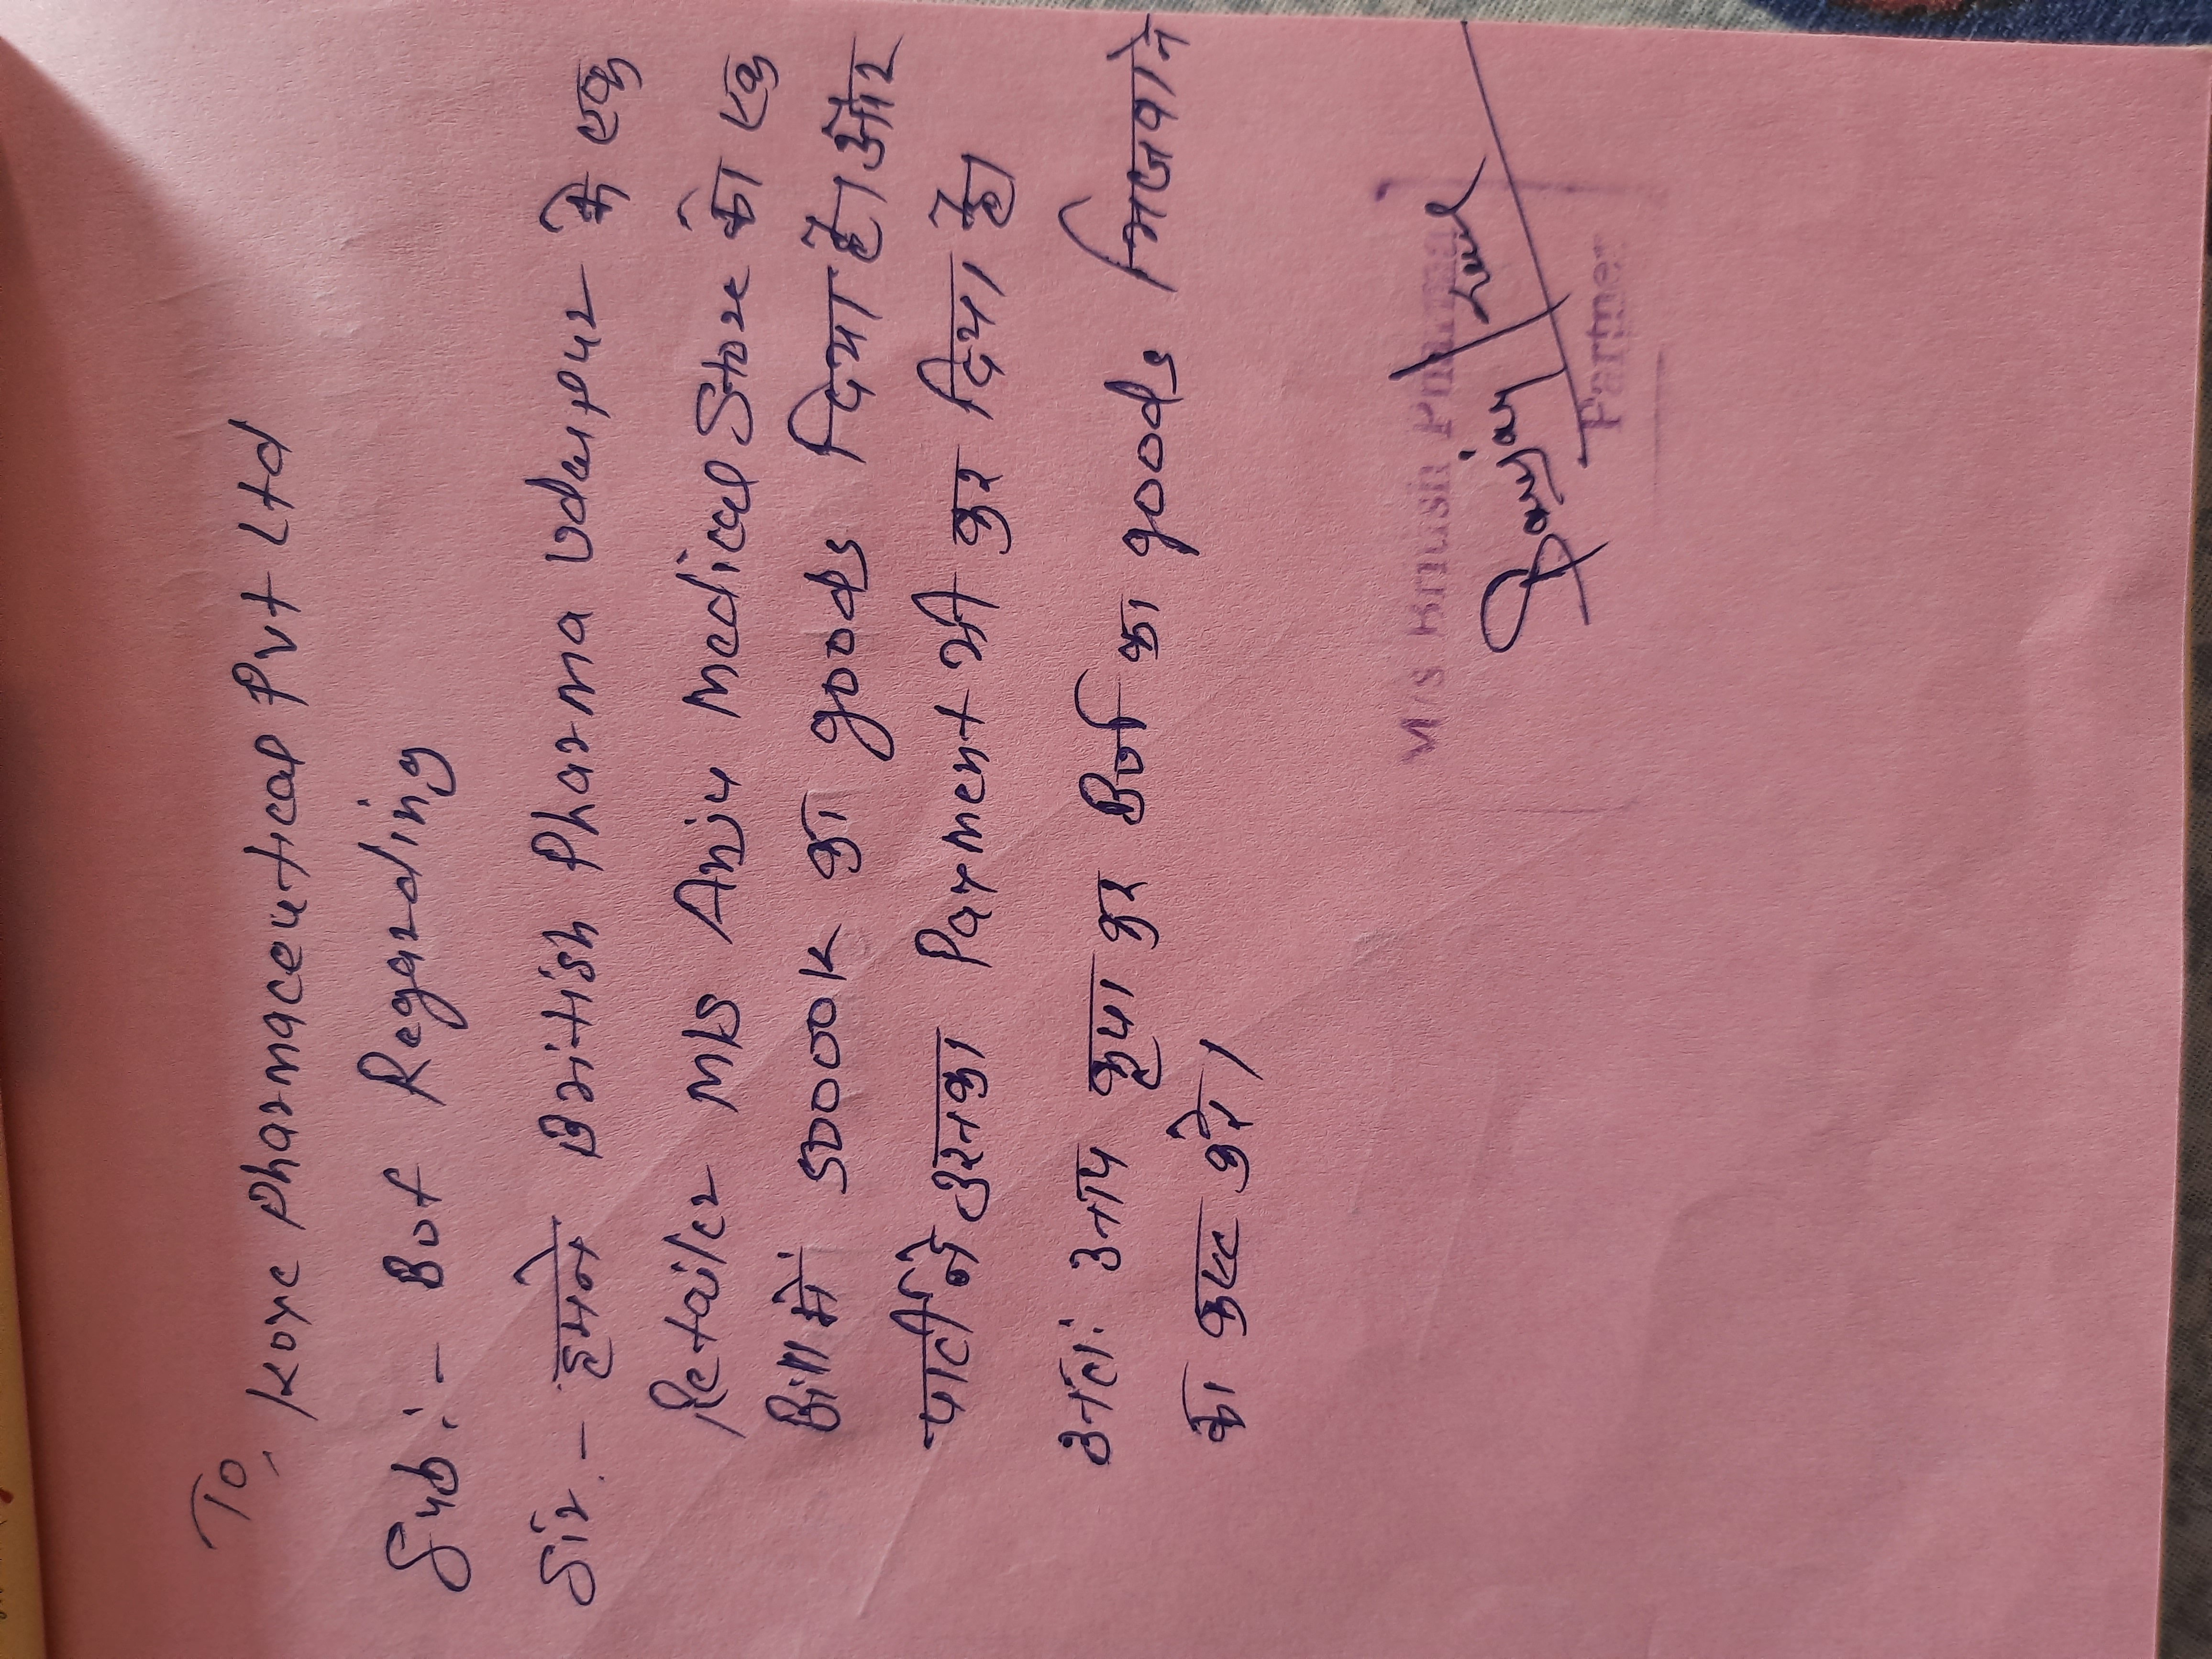 To,
Koye Pharmaceutical Pvt Ltd
Sub:- Bof Regarding
Sir.- हमने British Pharma Udaipur के एक
Retailer M/s Anju Medical Store को एक
Bill में 50000K का goods दिया है। और
पार्टी ने उसका Payment भी कर दिया है।
अतः आप कृपा कर Bof का goods भिजवाने
का कष्ट करे।
M/s Khushi Pharma
Sanjay
Partner